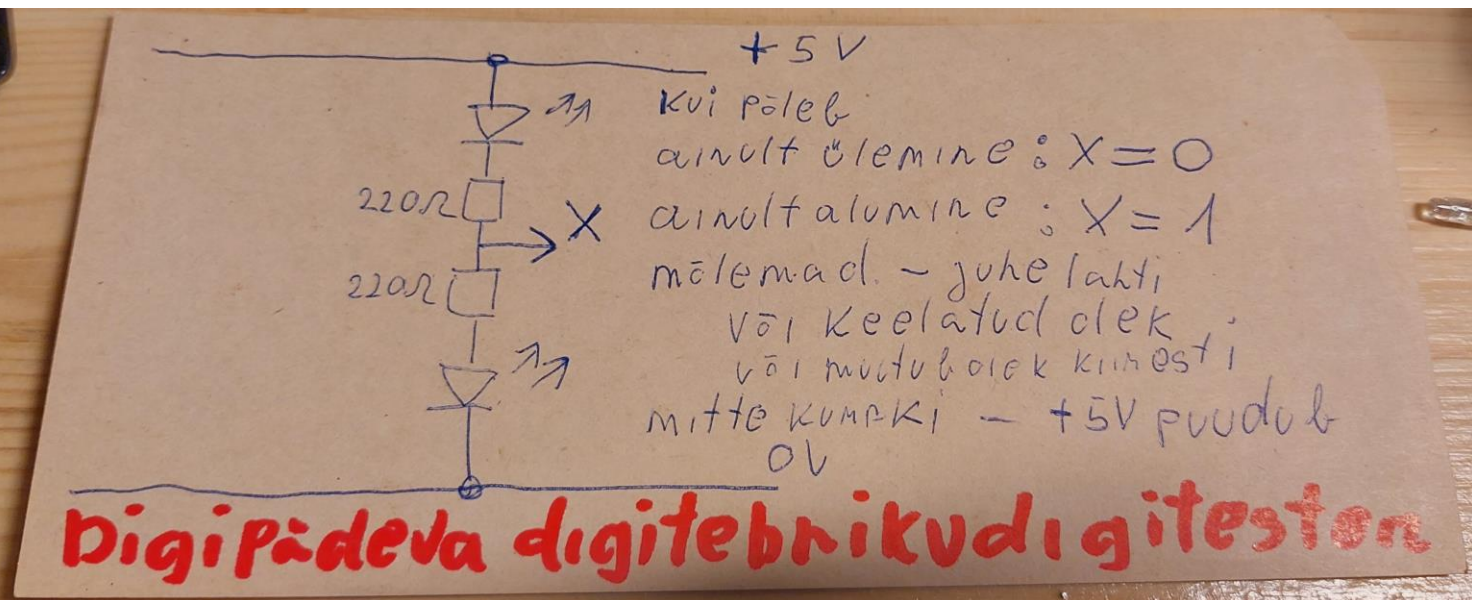 +5V
kui põleb
ainult ülemine : X=0
220Ω
X
ainult alumine : X=1
220Ω
mõlemad - juhe lahti
või keelatud olek
või muutub olek kiiresti
mitte kumbki - +5V puudub
0V
Digipädeva digitehnikudigitester